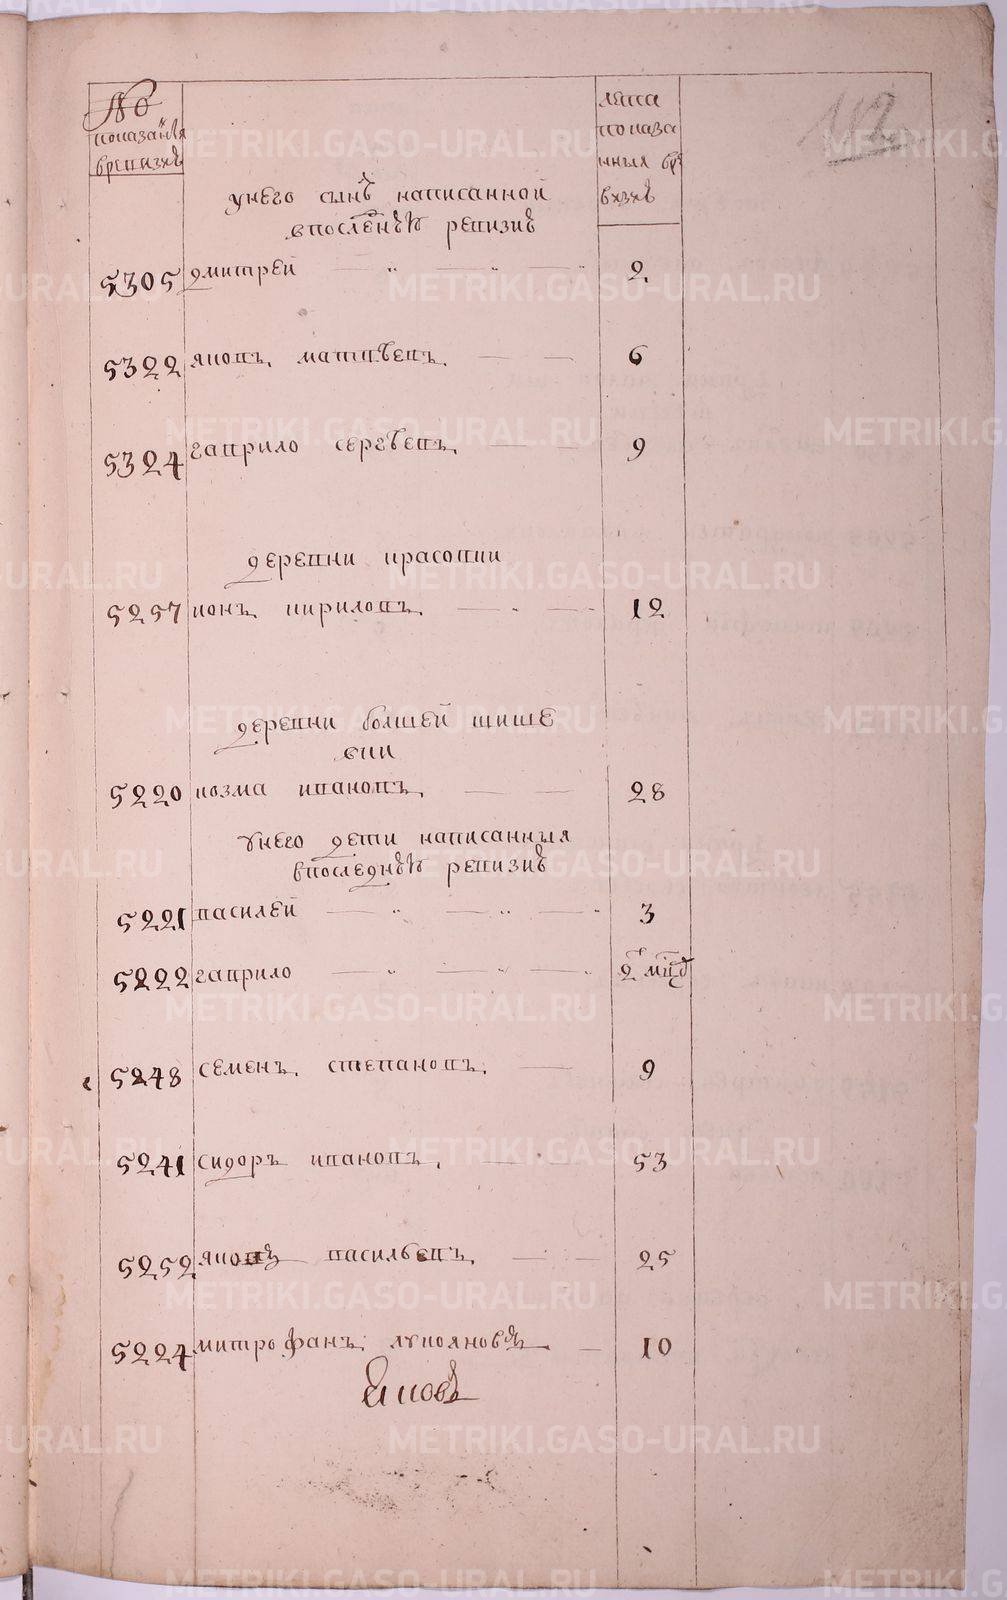 №
показанъія
вревизкѣ
лета
показа
нныя вре
визкѣ
112
унего сынъ написанной
впосленѣй ревизиѣ
5305 дмитрей 2
5322 яковъ матвѣевъ 6
5324 гаврило сергѣевъ 9
деревни красовки
5257 ионъ кириловъ 12
деревни болшей шише
вки
5220 козма ивановъ 28
унего дети написанныя
впоследнѣй ревизиѣ
5221 василей 3
5222 гаврило 2 мцъ
5248 семенъ степановъ 9
5241 сидоръ ивановъ 53
5252 яковъ васильевъ 25
5224 митрофанъ лукояновъ 10
Яковъ
METRIKI.GASO-URAL.RU